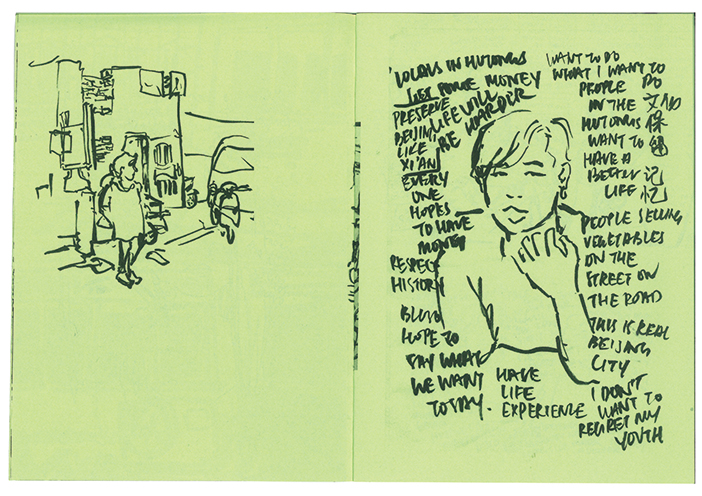 LOCALS IN HUTONGS
GET MORE MONEY
LIFE WILL
BE HARDER
PRESERVE
BEIJING
LIKE
XI'AN
EVERY
ONE
HOPES
TO HAVE
MONEY
RESPECT
HISTORY
HOPE TO
SAY WHAT
WE WANT
TODAY.
HAVE
LIFE
EXPERIENCE
WANT TO DO
WHAT I WANT TO
DO
PEOPLE
IN THE
HUTONGS
WANT TO
HAVE A
BETTER
LIFE
保
留
记
忆
PEOPLE SELLING
VEGETABLES
ON THE
STREET ON
THE ROAD
THIS IS REAL
BEIJING
CITY
I DON'T
WANT TO
REGRET MY
YOUTH